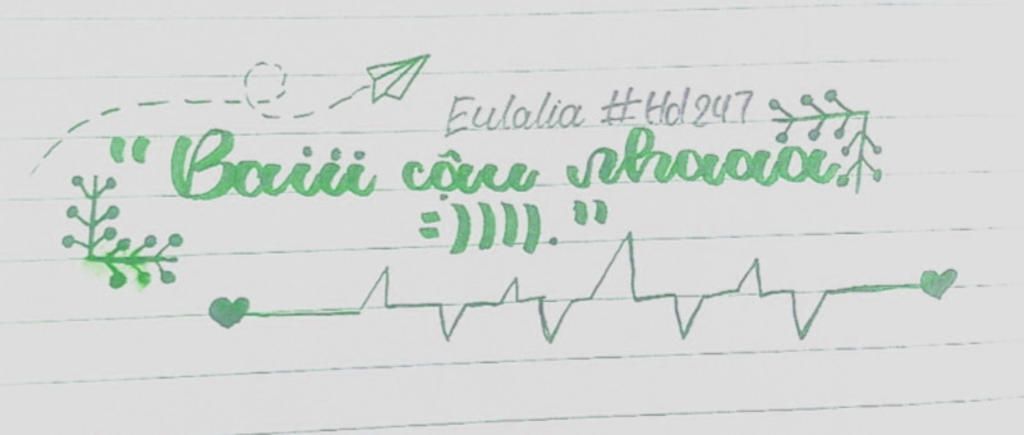 Eulalia #Hd247
" Baiii cậu nhaaaa
=)))). "